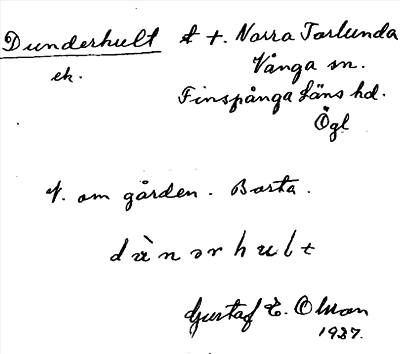 Dunderhult t +. Norra Torlunda
ek. Vånga sn.
Finspånga läns hd.
Ögl
V. om gården. Borta.
dànərhult
Gustaf E. Olson
1937.